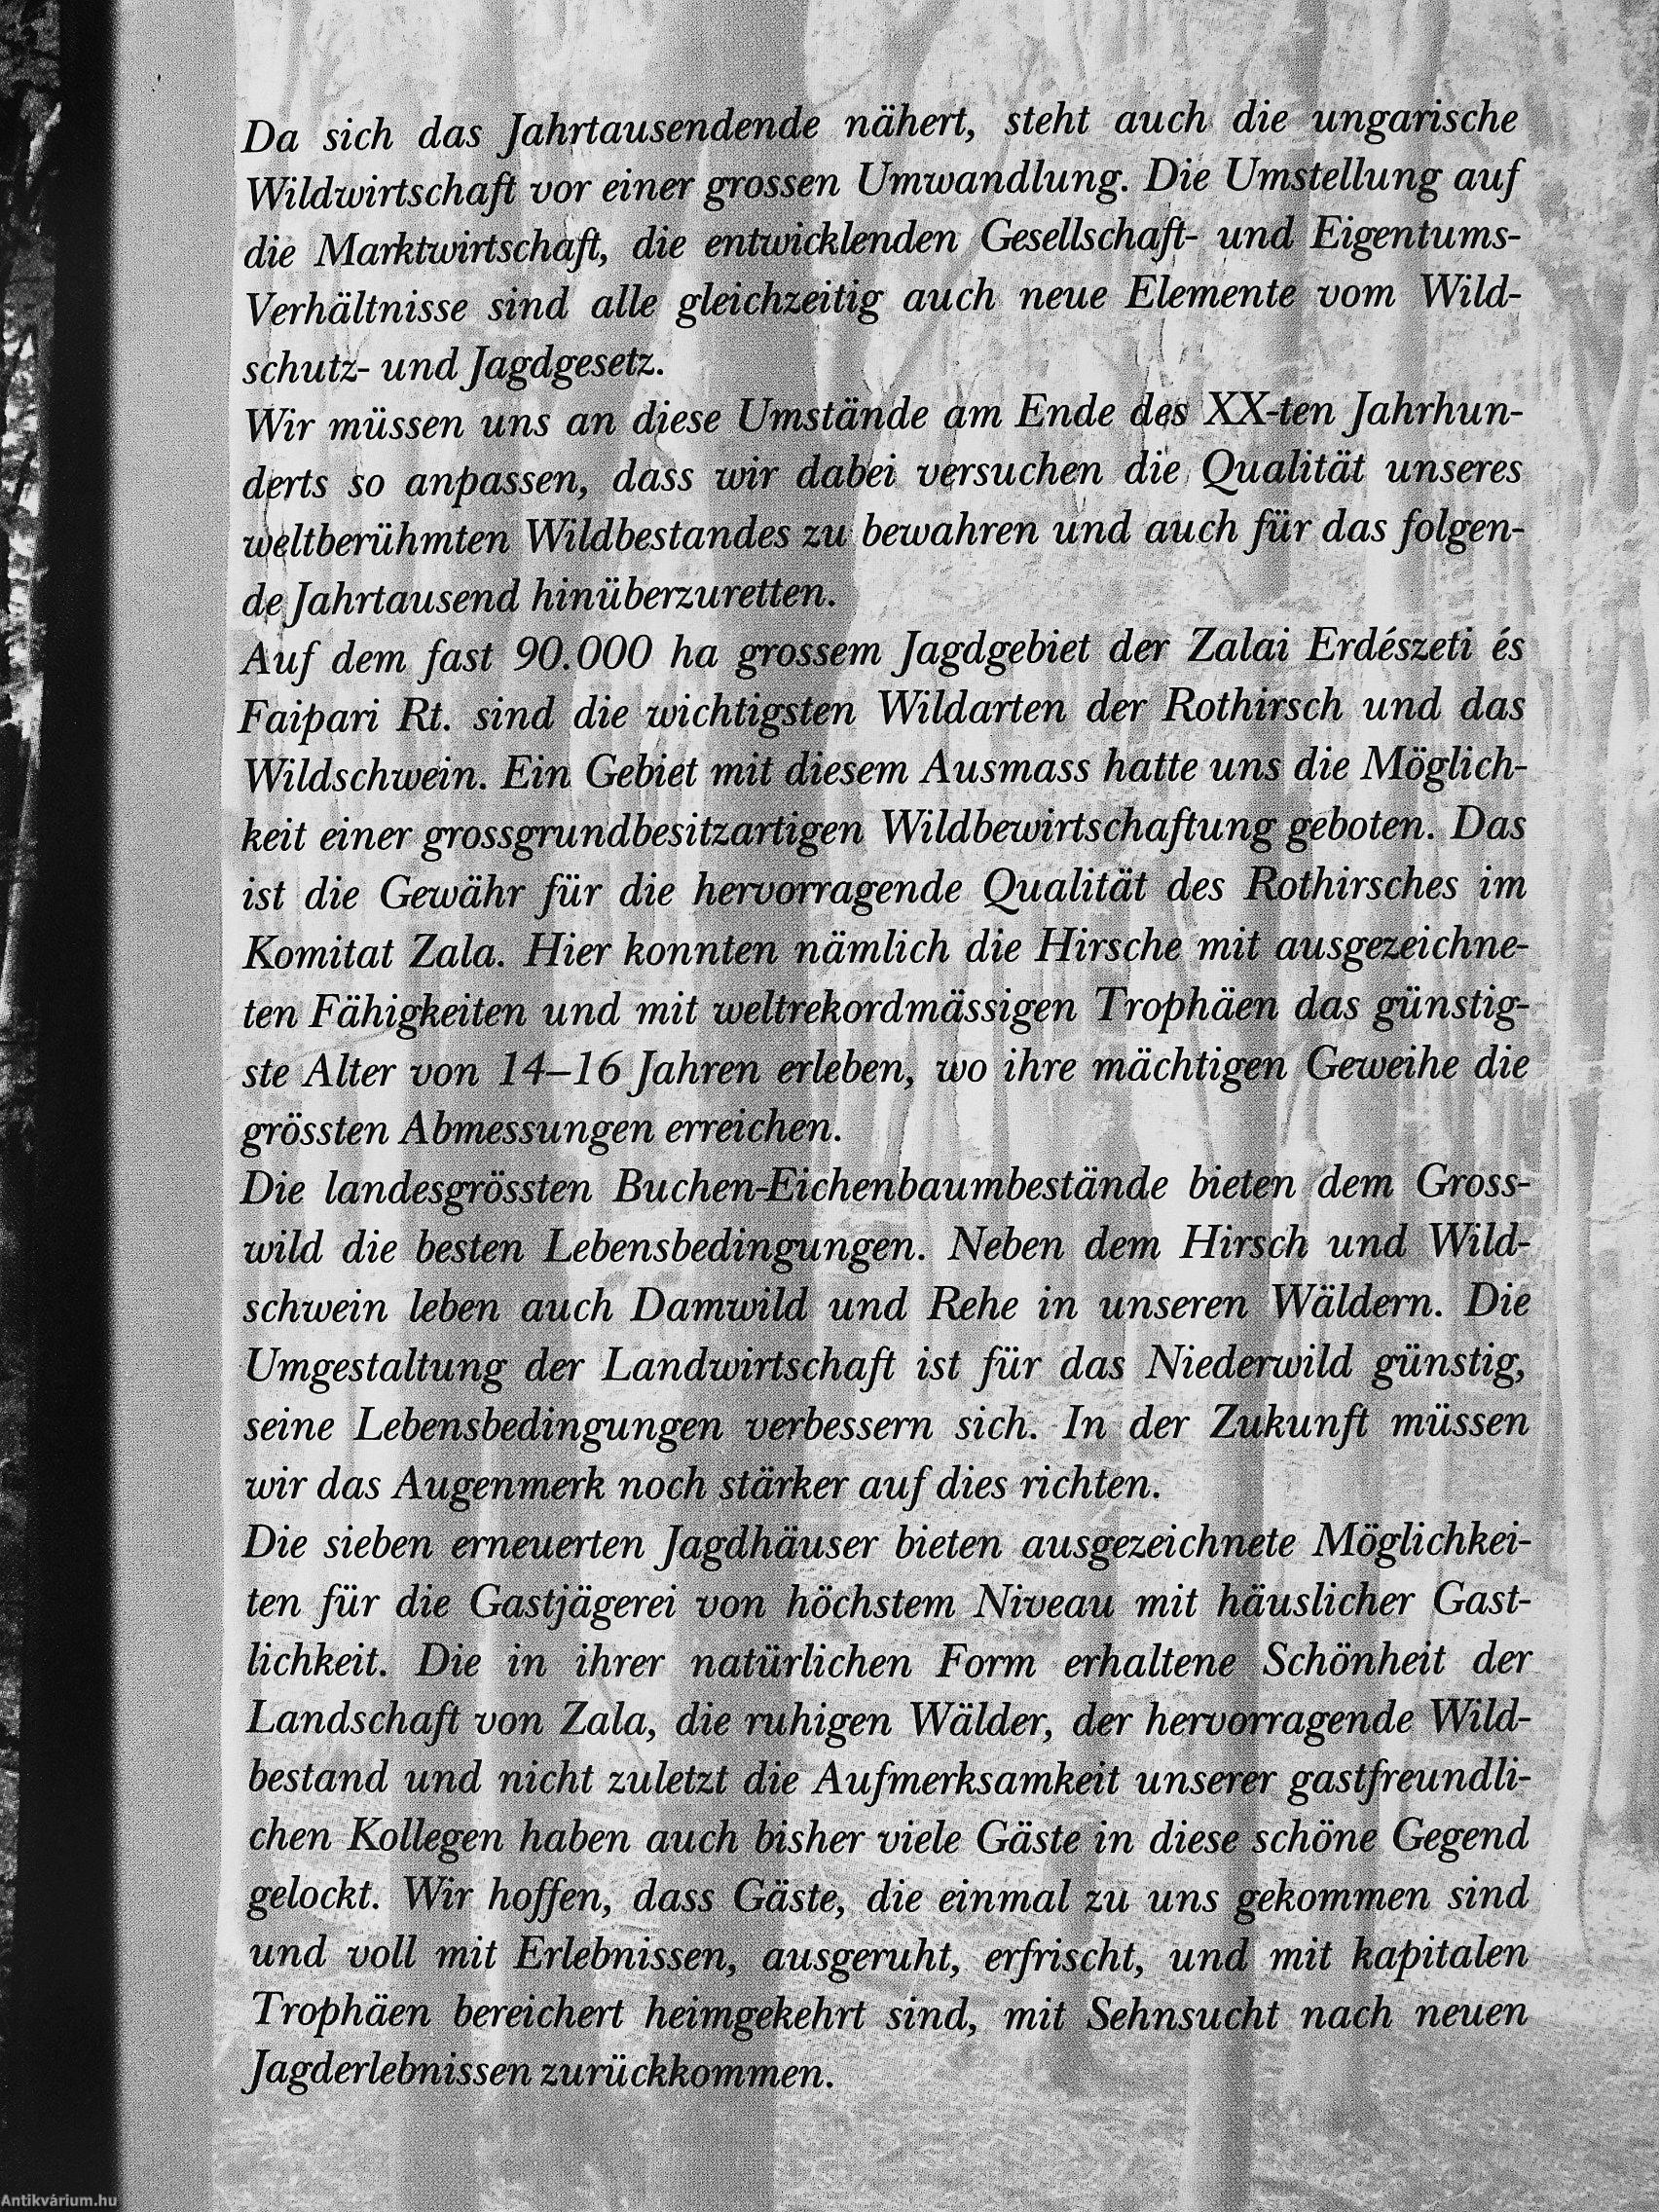 Da sich das Jahrtausendende nähert, steht auch die ungarische
Wildwirtschaft vor einer grossen Umwandlung. Die Umstellung auf
die Marktwirtschaft, die entwicklenden Gesellschaft- und Eigentums-
Verhältnisse sind alle gleichzeitig auch neue Elemente vom Wild-
schutz- und Jagdgesetz.
Wir müssen uns an diese Umstände am Ende des XX-ten Jahrhun-
derts so anpassen, dass wir dabei versuchen die Qualität unseres
weltberühmten Wildbestandes zu bewahren und auch für das folgen-
de Jahrtausend hinüberzuretten.
Auf dem fast 90.000 ha grossem Jagdgebiet der Zalai Erdészeti és
Faipari Rt. sind die wichtigsten Wildarten der Rothirsch und das
Wildschwein. Ein Gebiet mit diesem Ausmass hatte uns die Möglich-
keit einer grossgrundbesitzartigen Wildbewirtschaftung geboten. Das
ist die Gewähr für die hervorragende Qualität des Rothirsches im
Komitat Zala. Hier konnten nämlich die Hirsche mit ausgezeichne-
ten Fähigkeiten und mit weltrekordmässigen Trophäen das günstig-
ste Alter von 14–16 Jahren erleben, wo ihre mächtigen Geweihe die
grössten Abmessungen erreichen.
Die landesgrössten Buchen-Eichenbaumbestände bieten dem Gross-
wild die besten Lebensbedingungen. Neben dem Hirsch und Wild-
schwein leben auch Damwild und Rehe in unseren Wäldern. Die
Umgestaltung der Landwirtschaft ist für das Niederwild günstig,
seine Lebensbedingungen verbessern sich. In der Zukunft müssen
wir das Augenmerk noch stärker auf dies richten.
Die sieben erneuerten Jagdhäuser bieten ausgezeichnete Möglichkei-
ten für die Gastjägerei von höchstem Niveau mit häuslicher Gast-
lichkeit. Die in ihrer natürlichen Form erhaltene Schönheit der
Landschaft von Zala, die ruhigen Wälder, der hervorragende Wild-
bestand und nicht zuletzt die Aufmerksamkeit unserer gastfreundli-
chen Kollegen haben auch bisher viele Gäste in diese schöne Gegend
gelockt. Wir hoffen, dass Gäste, die einmal zu uns gekommen sind
und voll mit Erlebnissen, ausgeruht, erfrischt, und mit kapitalen
Trophäen bereichert heimgekehrt sind, mit Sehnsucht nach neuen
Jagderlebnissen zurückkommen.
Antikvárium.hu